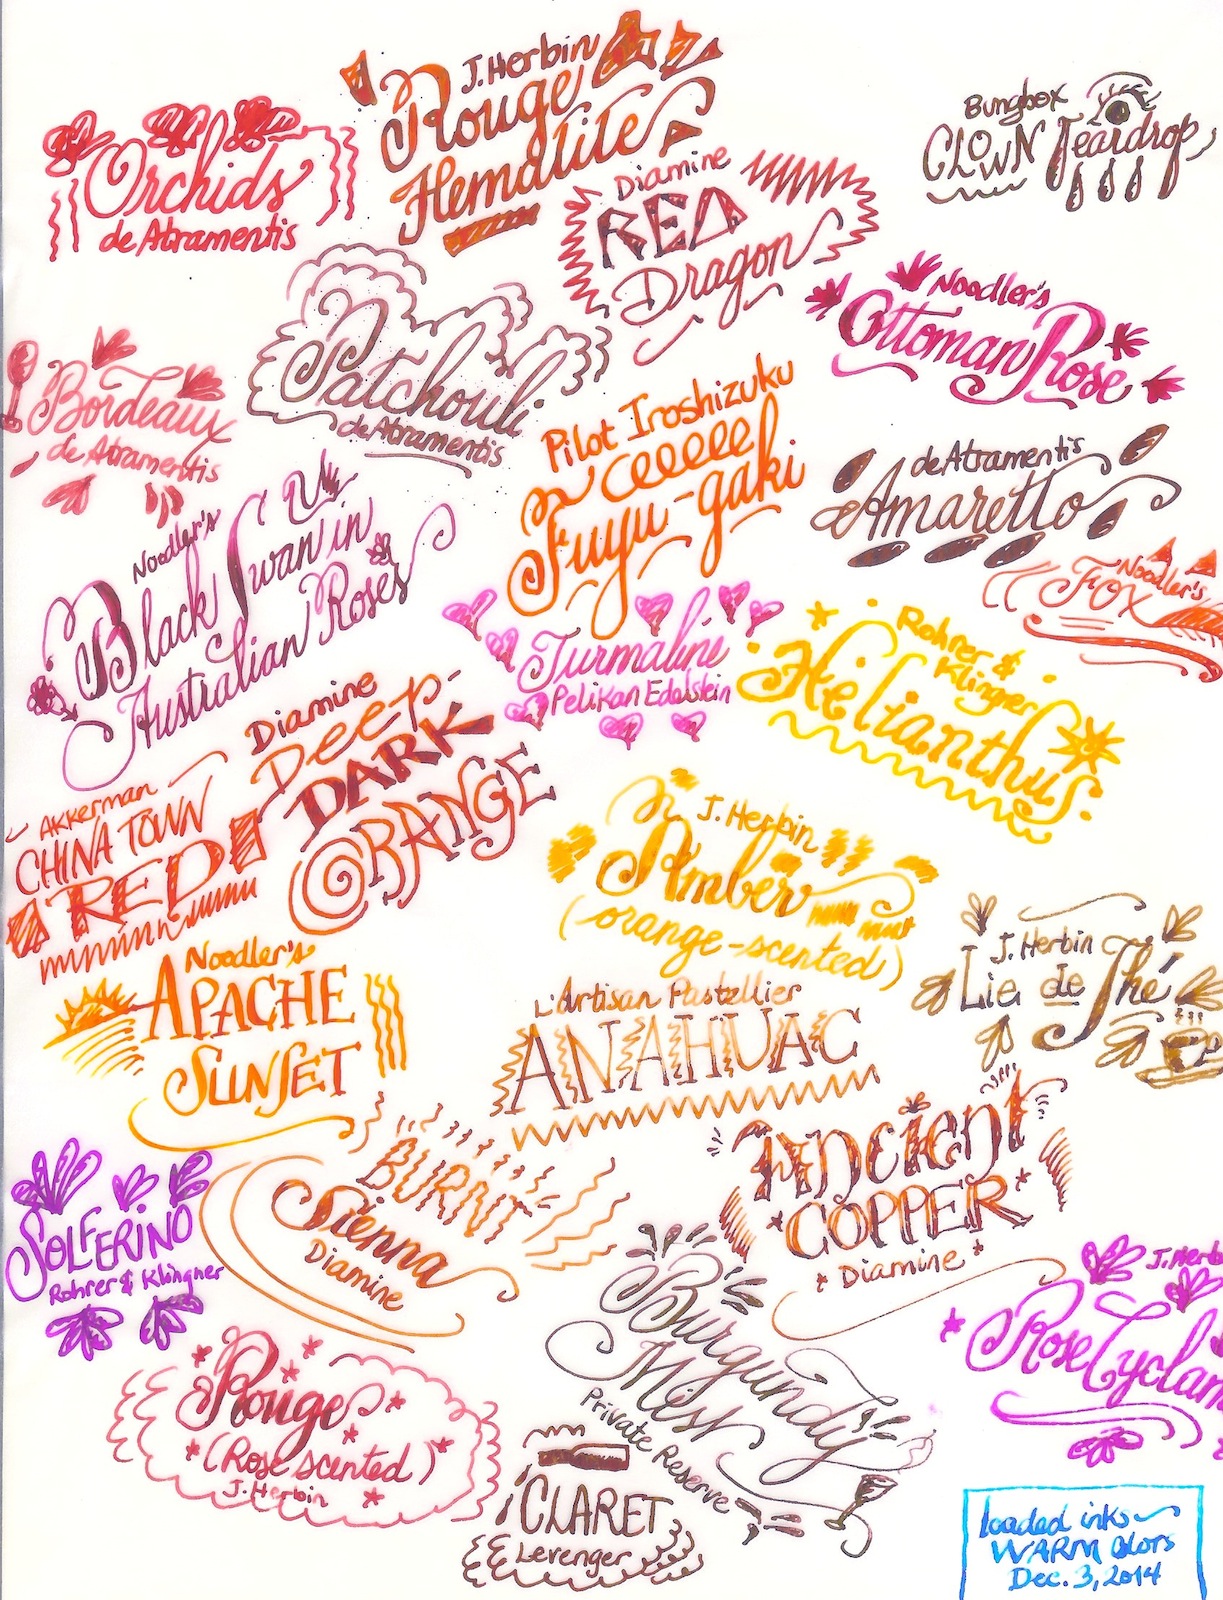 J. Herbin
Rouge
Hematite
Orchids
de Atramentis
Bungbox
CLOWN Teardrop
Diamine
RED
Dragon
Noodler's
Ottoman Rose
Patchouli
de Atramentis
Bordeaux
de Atramentis
Pilot Iroshizuku
Fuyu-gaki
de Atramentis
Amaretto
Noodler's
Black Swan in
Australian Roses
Noodler's
Fox
Turmaline
Pelikan Edelstein
Rohrer &
Klingner
Helianthus
Diamine
DEEP
DARK
ORANGE
Akkerman
CHINA TOWN
RED
J. Herbin
Amber
(orange-scented)
J. Herbin
Lie de Thé
Noodler's
APACHE
SUNSET
L'Artisan Pastellier
ANAHUAC
ANCIENT
COPPER
Diamine
BURNT
Sienna
Diamine
SOLFERINO
Rohrer & Klingner
Burgundy
Mist
Private Reserve
J. Herb
Rose Cyclam
Rouge
(Rose scented)
J. Herbin
CLARET
Levenger
loaded inks
WARM Colors
Dec. 3, 2014